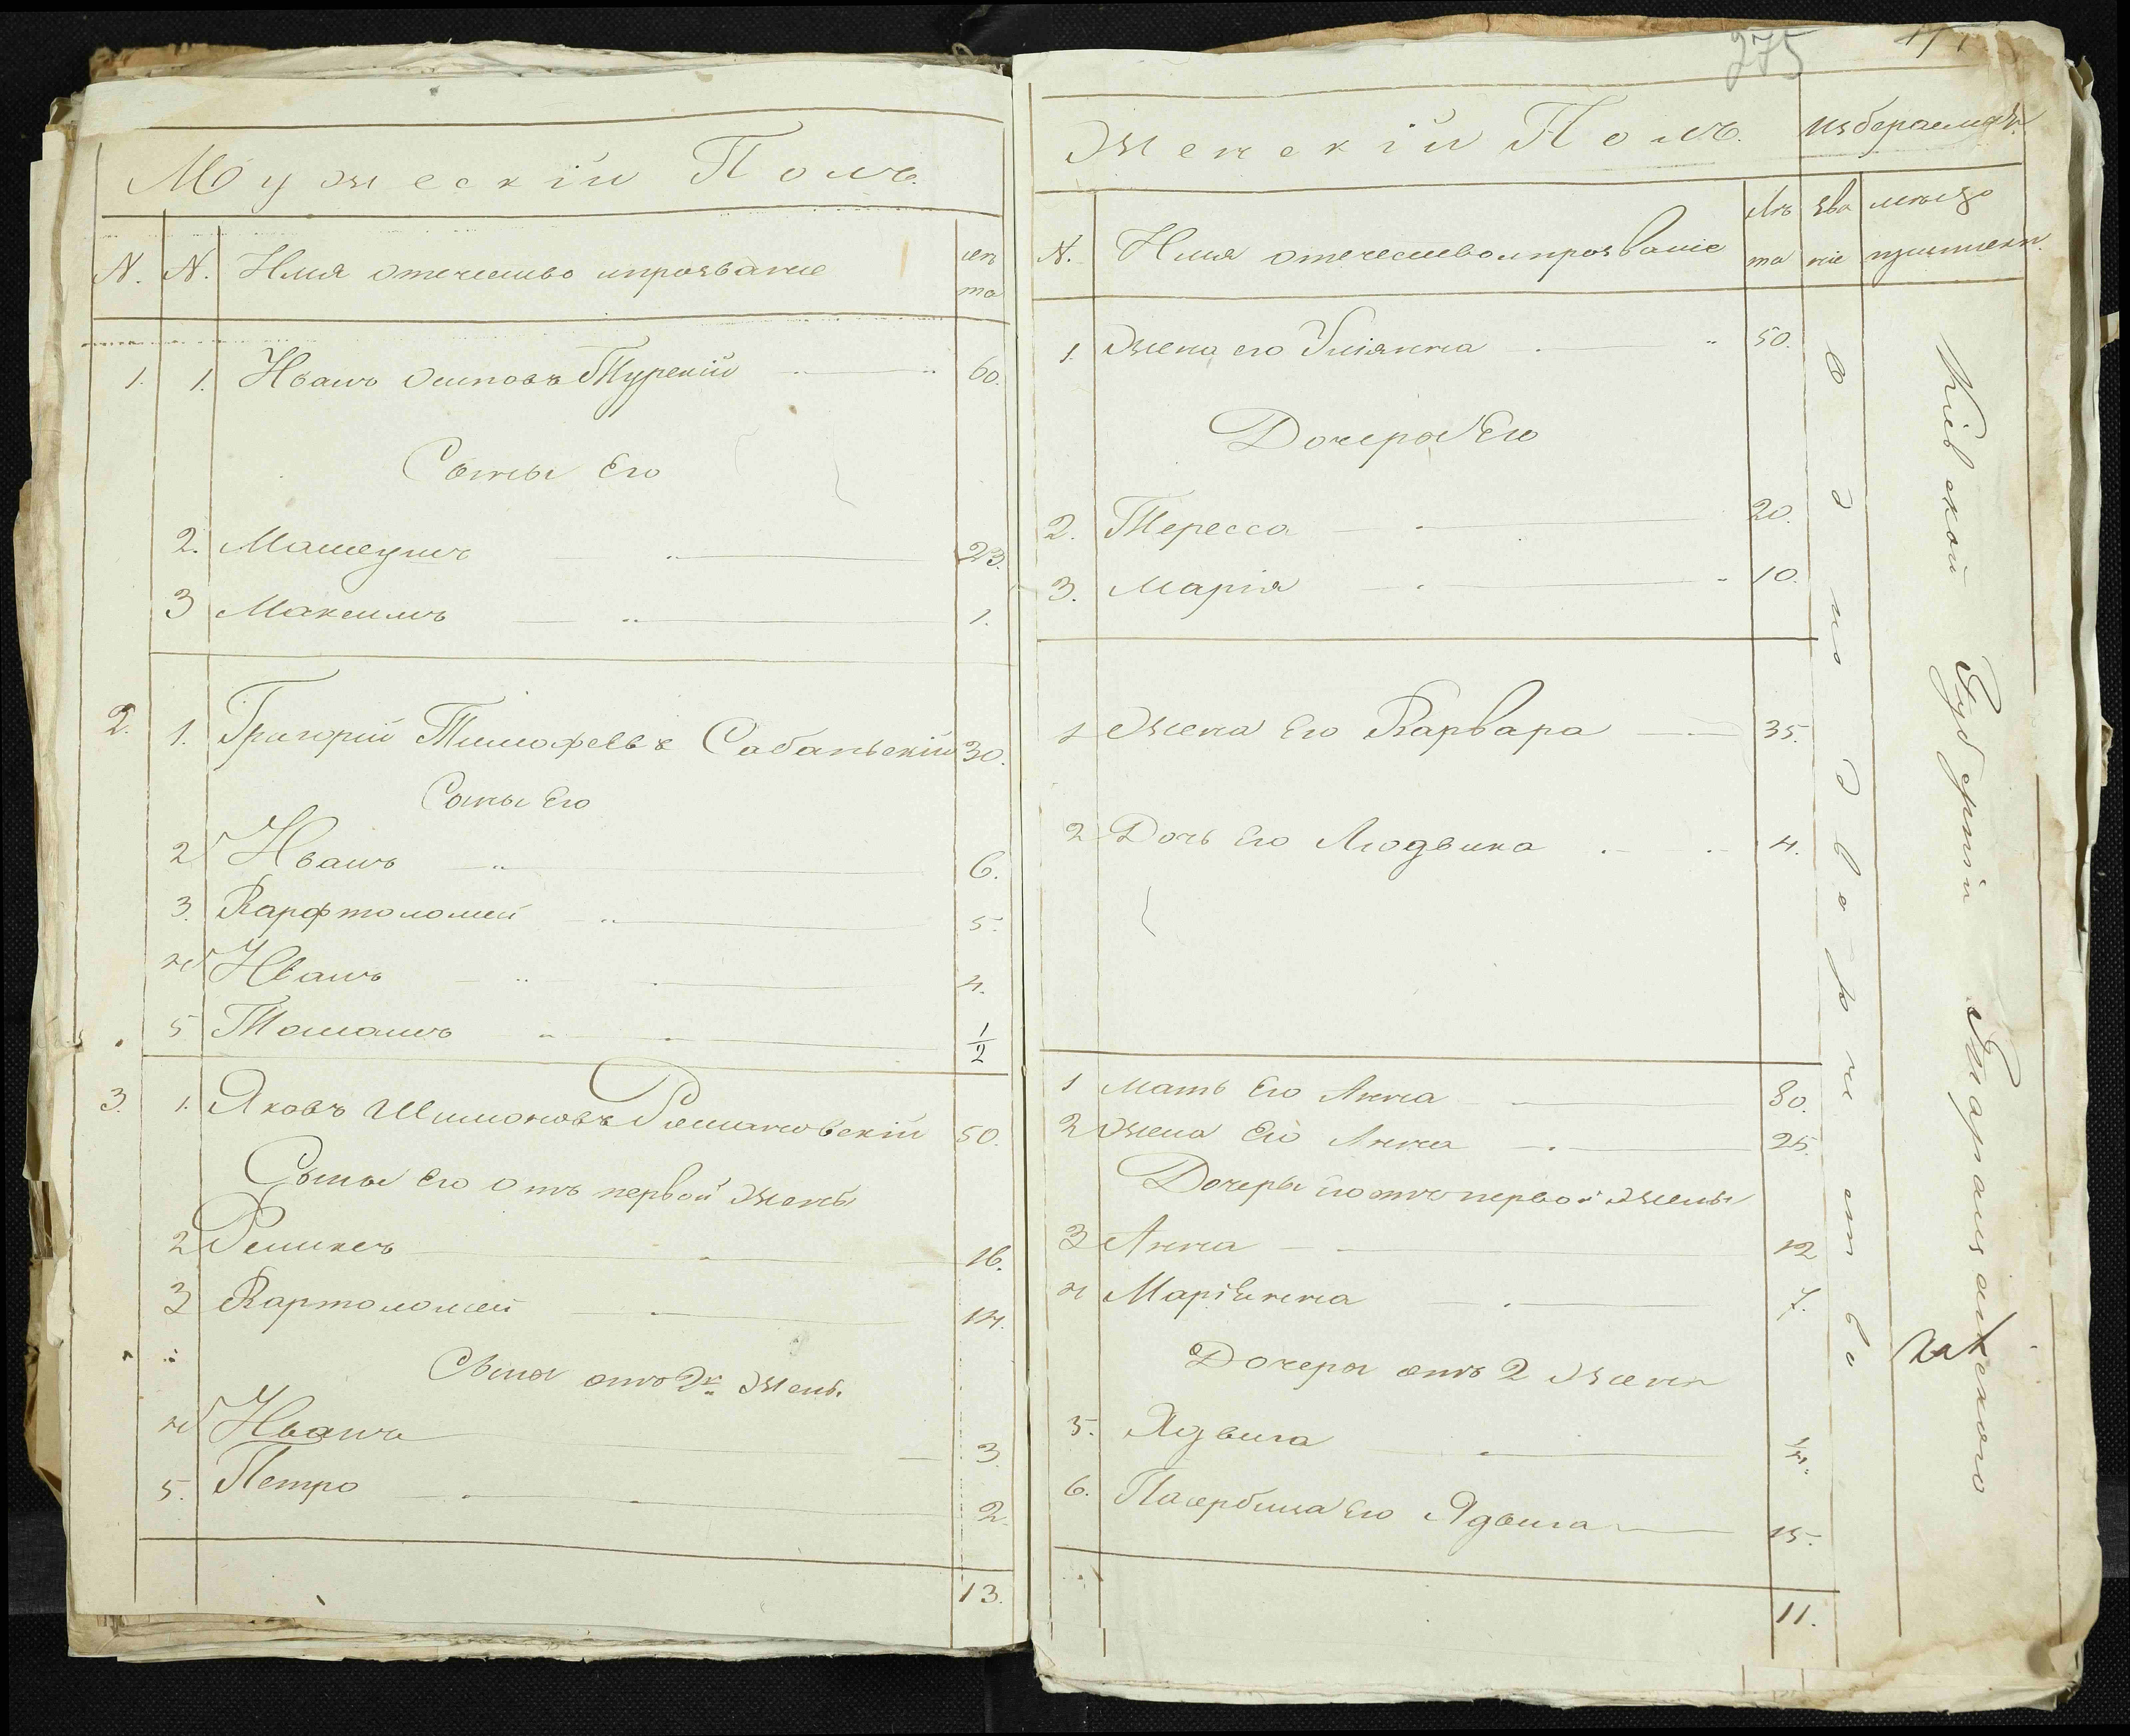 Мужескій Полъ.
N. N. Имя отечество ипрозвание лета
1. 1. Иванъ Осиповъ Турскій 60.
Сыны Его
2. Матеушъ 23.
3 Максимъ 1.
2. 1. Григорій Тимофеевъ Сабанскій 30.
Сыны Его
2 Иванъ 6.
3. Варфтоломей 5.
4 Иванъ 4.
5 Томашъ 1/2
3. 1. Яковъ Шимоновъ 50.
Сыны Его Отъ первой жены
2 Феликсъ 16.
3 Вартоломей 14.
Сыны отъ 2й жены
4 Иванъ 3.
5. Петро 2.
13.
275
Женскій Полъ.
избераемыя
N. Имя отечествоипрозваніе лѣта зва ніе место
1. Жена его Уліянна 50.
Дочеры Его
2. Тересса 20.
3. Марія 10.
1 Жена Его Варвара 35.
2 Дочь Его Людвика 4.
1 Мать Его Анна 80.
2 Жена Его Анна 25.
Дочеры Его отъ первой жены
3 Анна 12
4 Маріѣнна 7.
Дочеры отъ 2 жены
5. Ядвига 1/4.
6. Пасербица Его Ядвига 15.
11.
в однодворчество
Кіевской Губерніи Таращанского